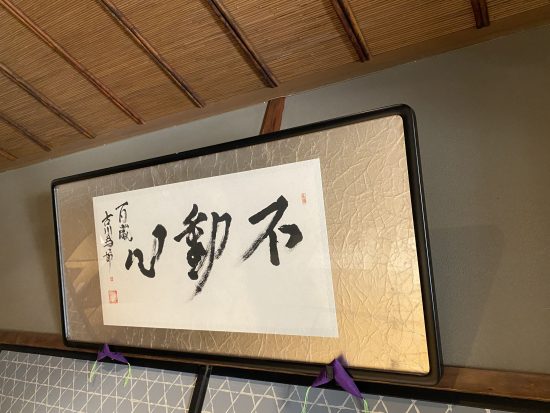 不動心
百歳
古川為三郎